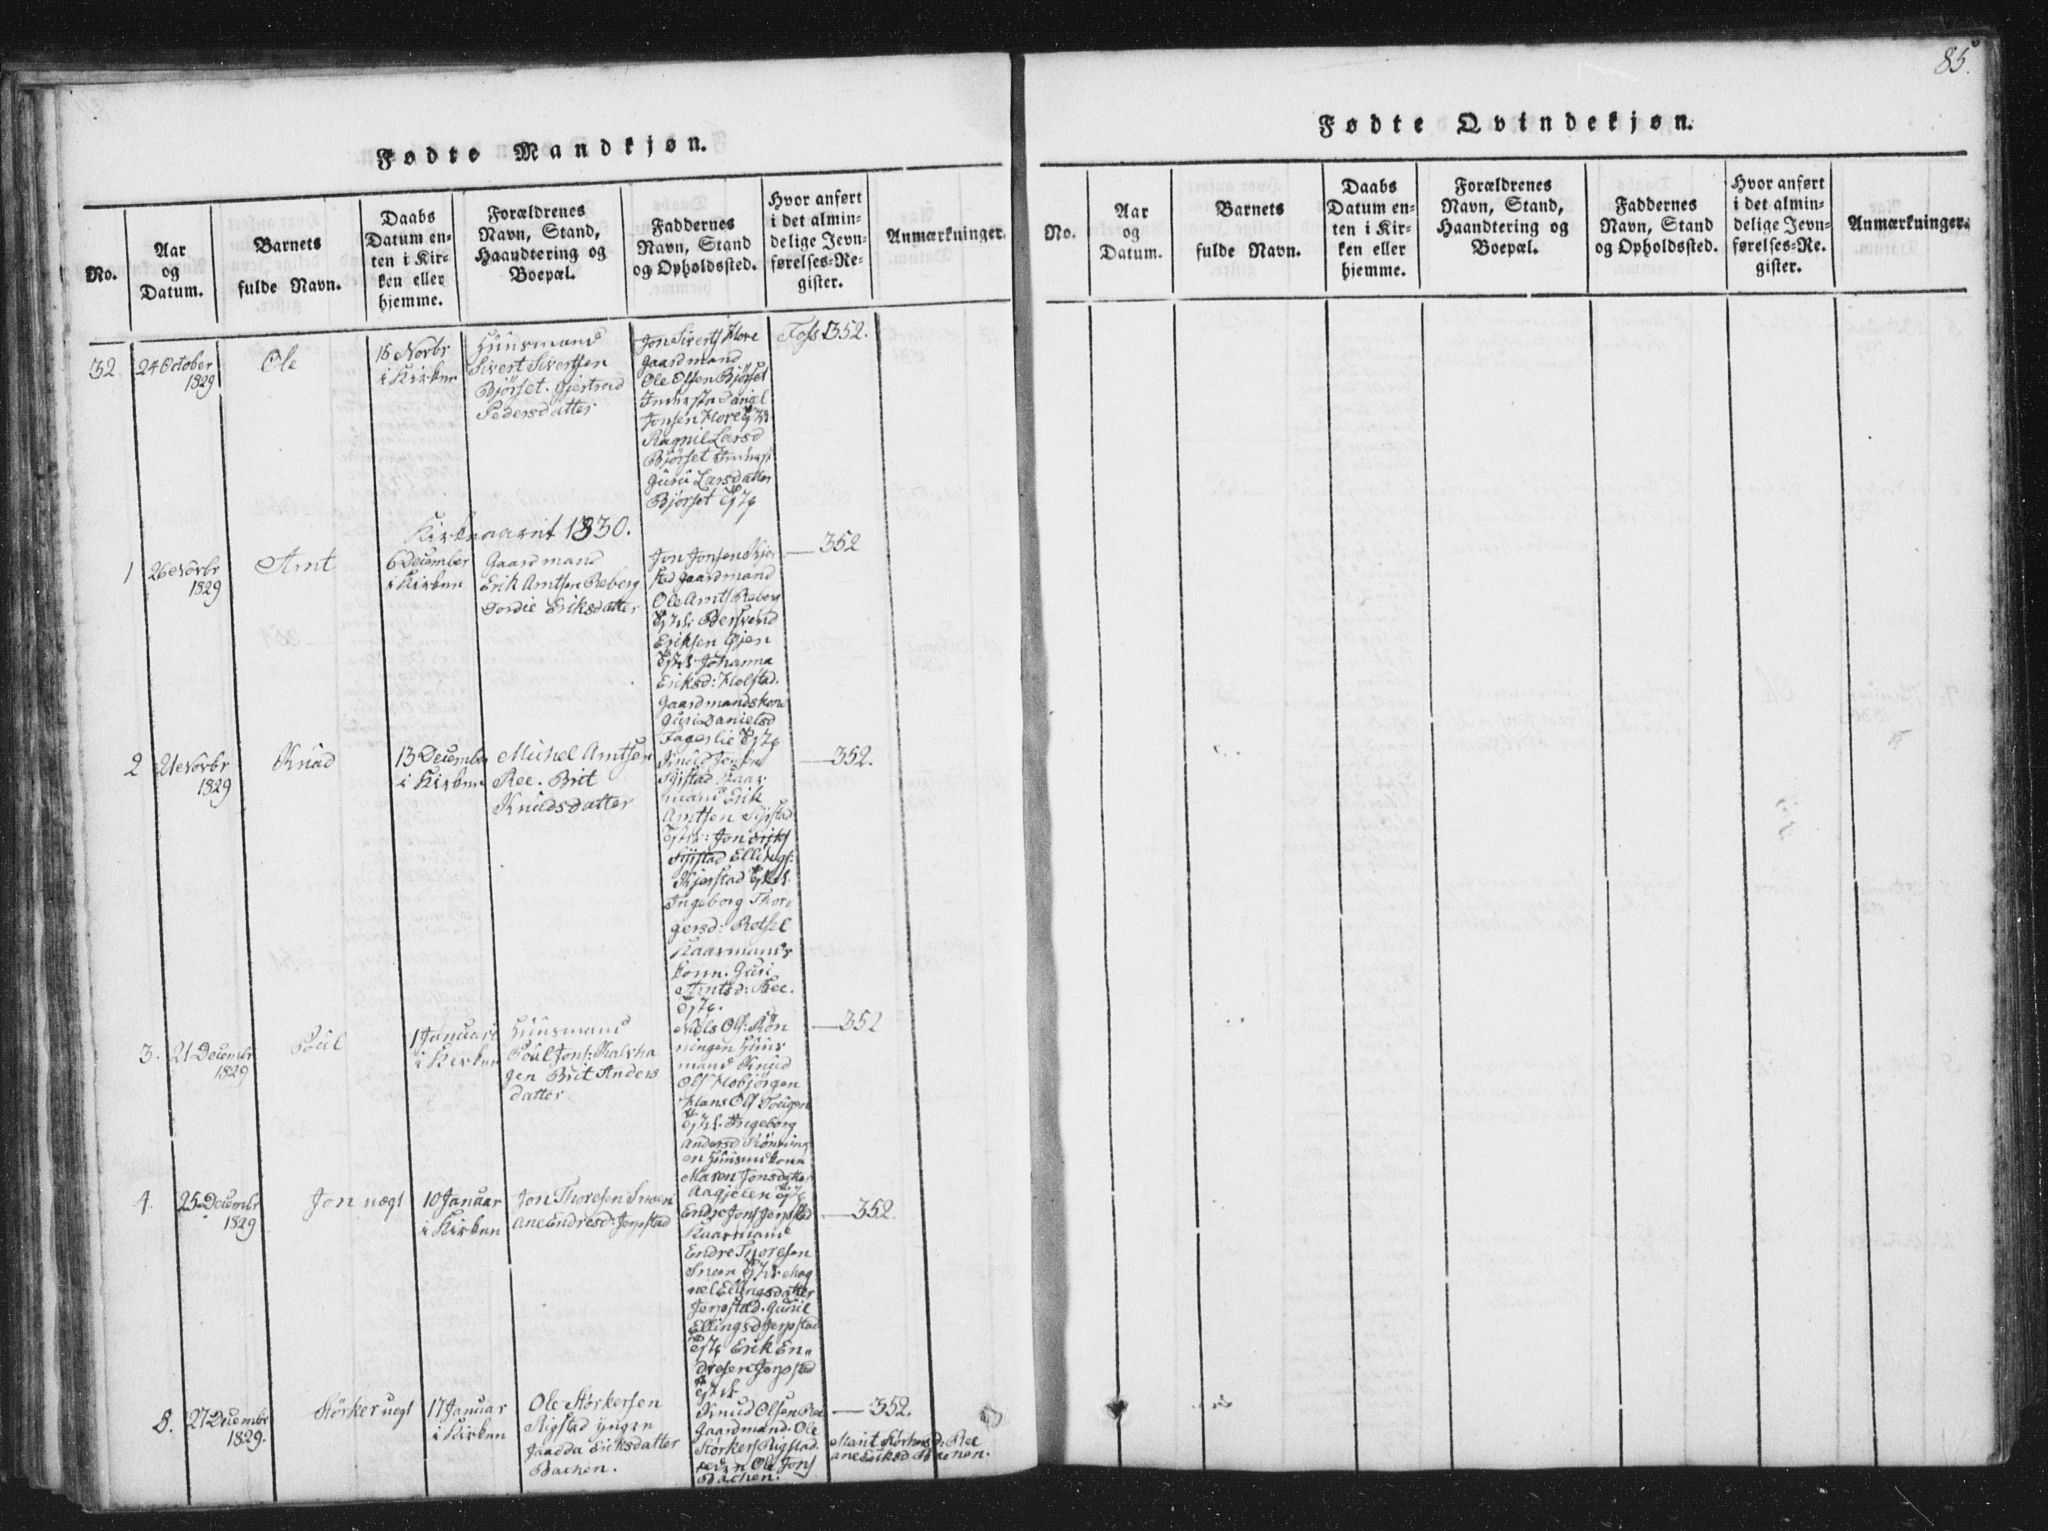 85.
Fødte Mandkjøn.
No.
Aar
og
Datum.
Barnets
fulde Navn.
Daabs
Datum en-
ten i Kir-
ken eller
hjemme.
Forældrenes
Navn, Stand,
Haandtering og
Boepæl.
Faddernes
Navn, Stand
og Opholdssted.
Hvor anført
i det almin-
delige Jevn-
førelses-Re-
gister.
Anmærkninger.
32.
24 October
1829
Ole
15 Novbr
i Kirken
Huusmand
Sivert Sivertsen
Bjørset. Gjertrud
Pedersdatter
Jon Siverts Hore
Gaardmand
Ole Olsen Bjørset
Daniel
Jonsen Hore
Ragnil Larsd
Bjørset
Guru Larsdatter
Bjørset
Fols 352.
Kirkeaaret 1830.
1
26 Novbr
1829
Arnt
6 December
i Kirken
Gaardmand
Erik Arntsen Reberg
Dordie Eriksdatter
Jon Jonsen Kior
stad Gaardmand
Ole Arnts Reberg
Eriksen Øien
Johanna
Eriksd: Holstad.
Gaardmandskone
Guri Danielsd
Fagerlie
— 352
2
21 Novbr
1829
Knud
13 December
i Kirken
Michel Arntsen
Ree. Brit
Knudsdatter
Knud
mand Erik
Arntsen
Jon Eriks
Ellings:
Kjerstad
Ingeborg Thor
gersd:
Kaarmands
konn. Guri
Arntsd: Ree.
— 352.
3.
21 Decembr
1829
Poul
1 Januari
i Kirken
Huusmand
Poul Jons: Kalsha
gen Brit Anders
datter
Niels Ols: Røn
ningen Huus
mand Knud
Ols Hobjørgen
Hans Ols
Ingeborg
Andersd Rønning
en Huusmdkonn
Maren Jonsdatter
— 352
4.
25 Decembr
1829
Jon uægt
10 Januar
i Kirken
Jon Thoresen Sneen
Ane Endresd: Jerpstad
Endre Jons Jerpstad
Kaarmand
Endre Thoresen
Sneen Mag
nel Ellingsdatter
Jerpstad. Guril
Ellingsd Jerpstad
Erik En„
dresen Jerpstad
— 352.
5.
27 Decembr
1829.
Størker uægt
17 Januar
i Kirken
Ole Størkersen
Rigstad yngen
Gaadda Eriksdatter
Bachen.
Knud Olsen Ree
Gaardmand. Ole
Størkers Rigstad.
Ole Jons
Bachen.
— 352.
Marit Størkersd: Ree
ane Eriksd Bachen.
Fødte Qvindekjøn.
No.
Aar
og
Datum.
Barnets
fulde Navn.
Daabs
Datum en-
ten i Kir-
ken eller
hjemme.
Forældrenes
Navn, Stand,
Haandtering og
Boepæl.
Faddernes
Navn, Stand
og Opholdssted.
Hvor anført
i det almin-
delige Jevn-
førelses-Re-
gister.
Anmærkninger.